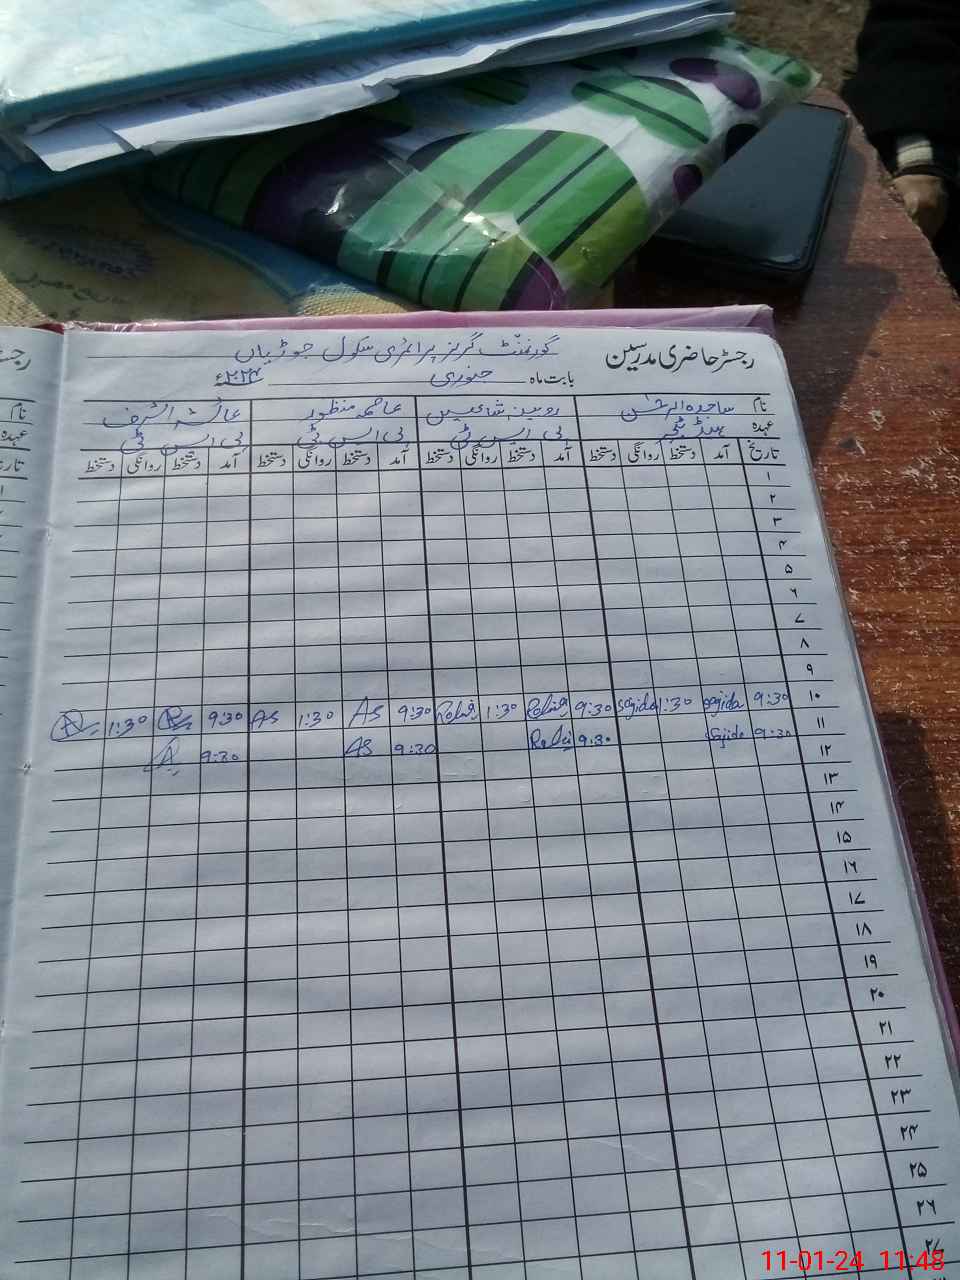 رجسٹر حاضری مدرسین
گورنمنٹ گرلز پرائمری سکول جوڑیاں
بابت ماہ جنوری ۲۰۲۴ء
نام ساجدہ روبینہ شاہین عاصمہ منظور عائشہ اشرف
عہدہ ہیڈ ٹیچر پی ایس ٹی پی ایس ٹی پی ایس ٹی
تاریخ آمد دستخط روانگی دستخط آمد دستخط روانگی دستخط آمد دستخط روانگی دستخط آمد دستخط روانگی دستخط
۱
۲
۳
۴
۵
۶
۷
۸
۹
۱۰ 9:30 sajida 1:30 sajida 9:30 1:30 9:30 As 1:30 As 9:30 1:30
۱۱ 9:30 sajida 9:30 9:30 As 9:30
۱۲
۱۳
۱۴
۱۵
۱۶
۱۷
۱۸
۱۹
۲۰
۲۱
۲۲
۲۳
۲۴
۲۵
۲۶
۲۷
11-01-24 11:48